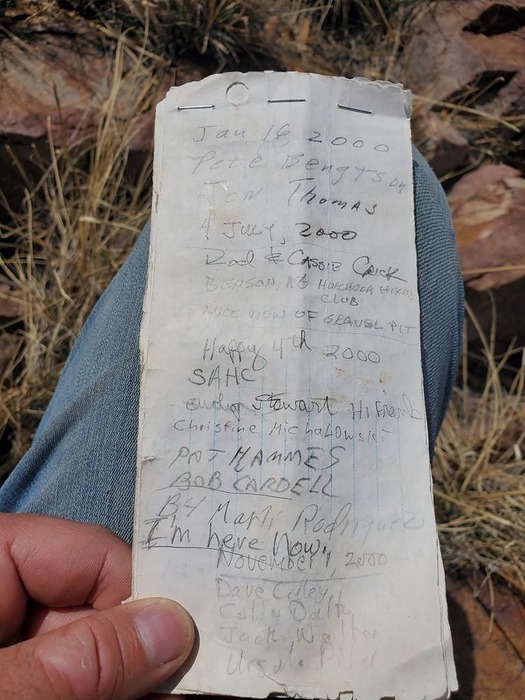 Jan 16, 2000
Pete Bengtson
Jon Thomas
4 July, 2000
Rod & Cassie
BENSON, HUACHUCA HIKING
CLUB
NICE VIEW OF GRAVEL PIT
Happy 4th 2000
SAHC
Stewart Hi Frank
Christine Michalowski
PAT HAMMES
BOB CARDELL
By Marli Rodriguez
I'm here Now,
November 1, 2000
Dave
Colin
Jack
Ursula